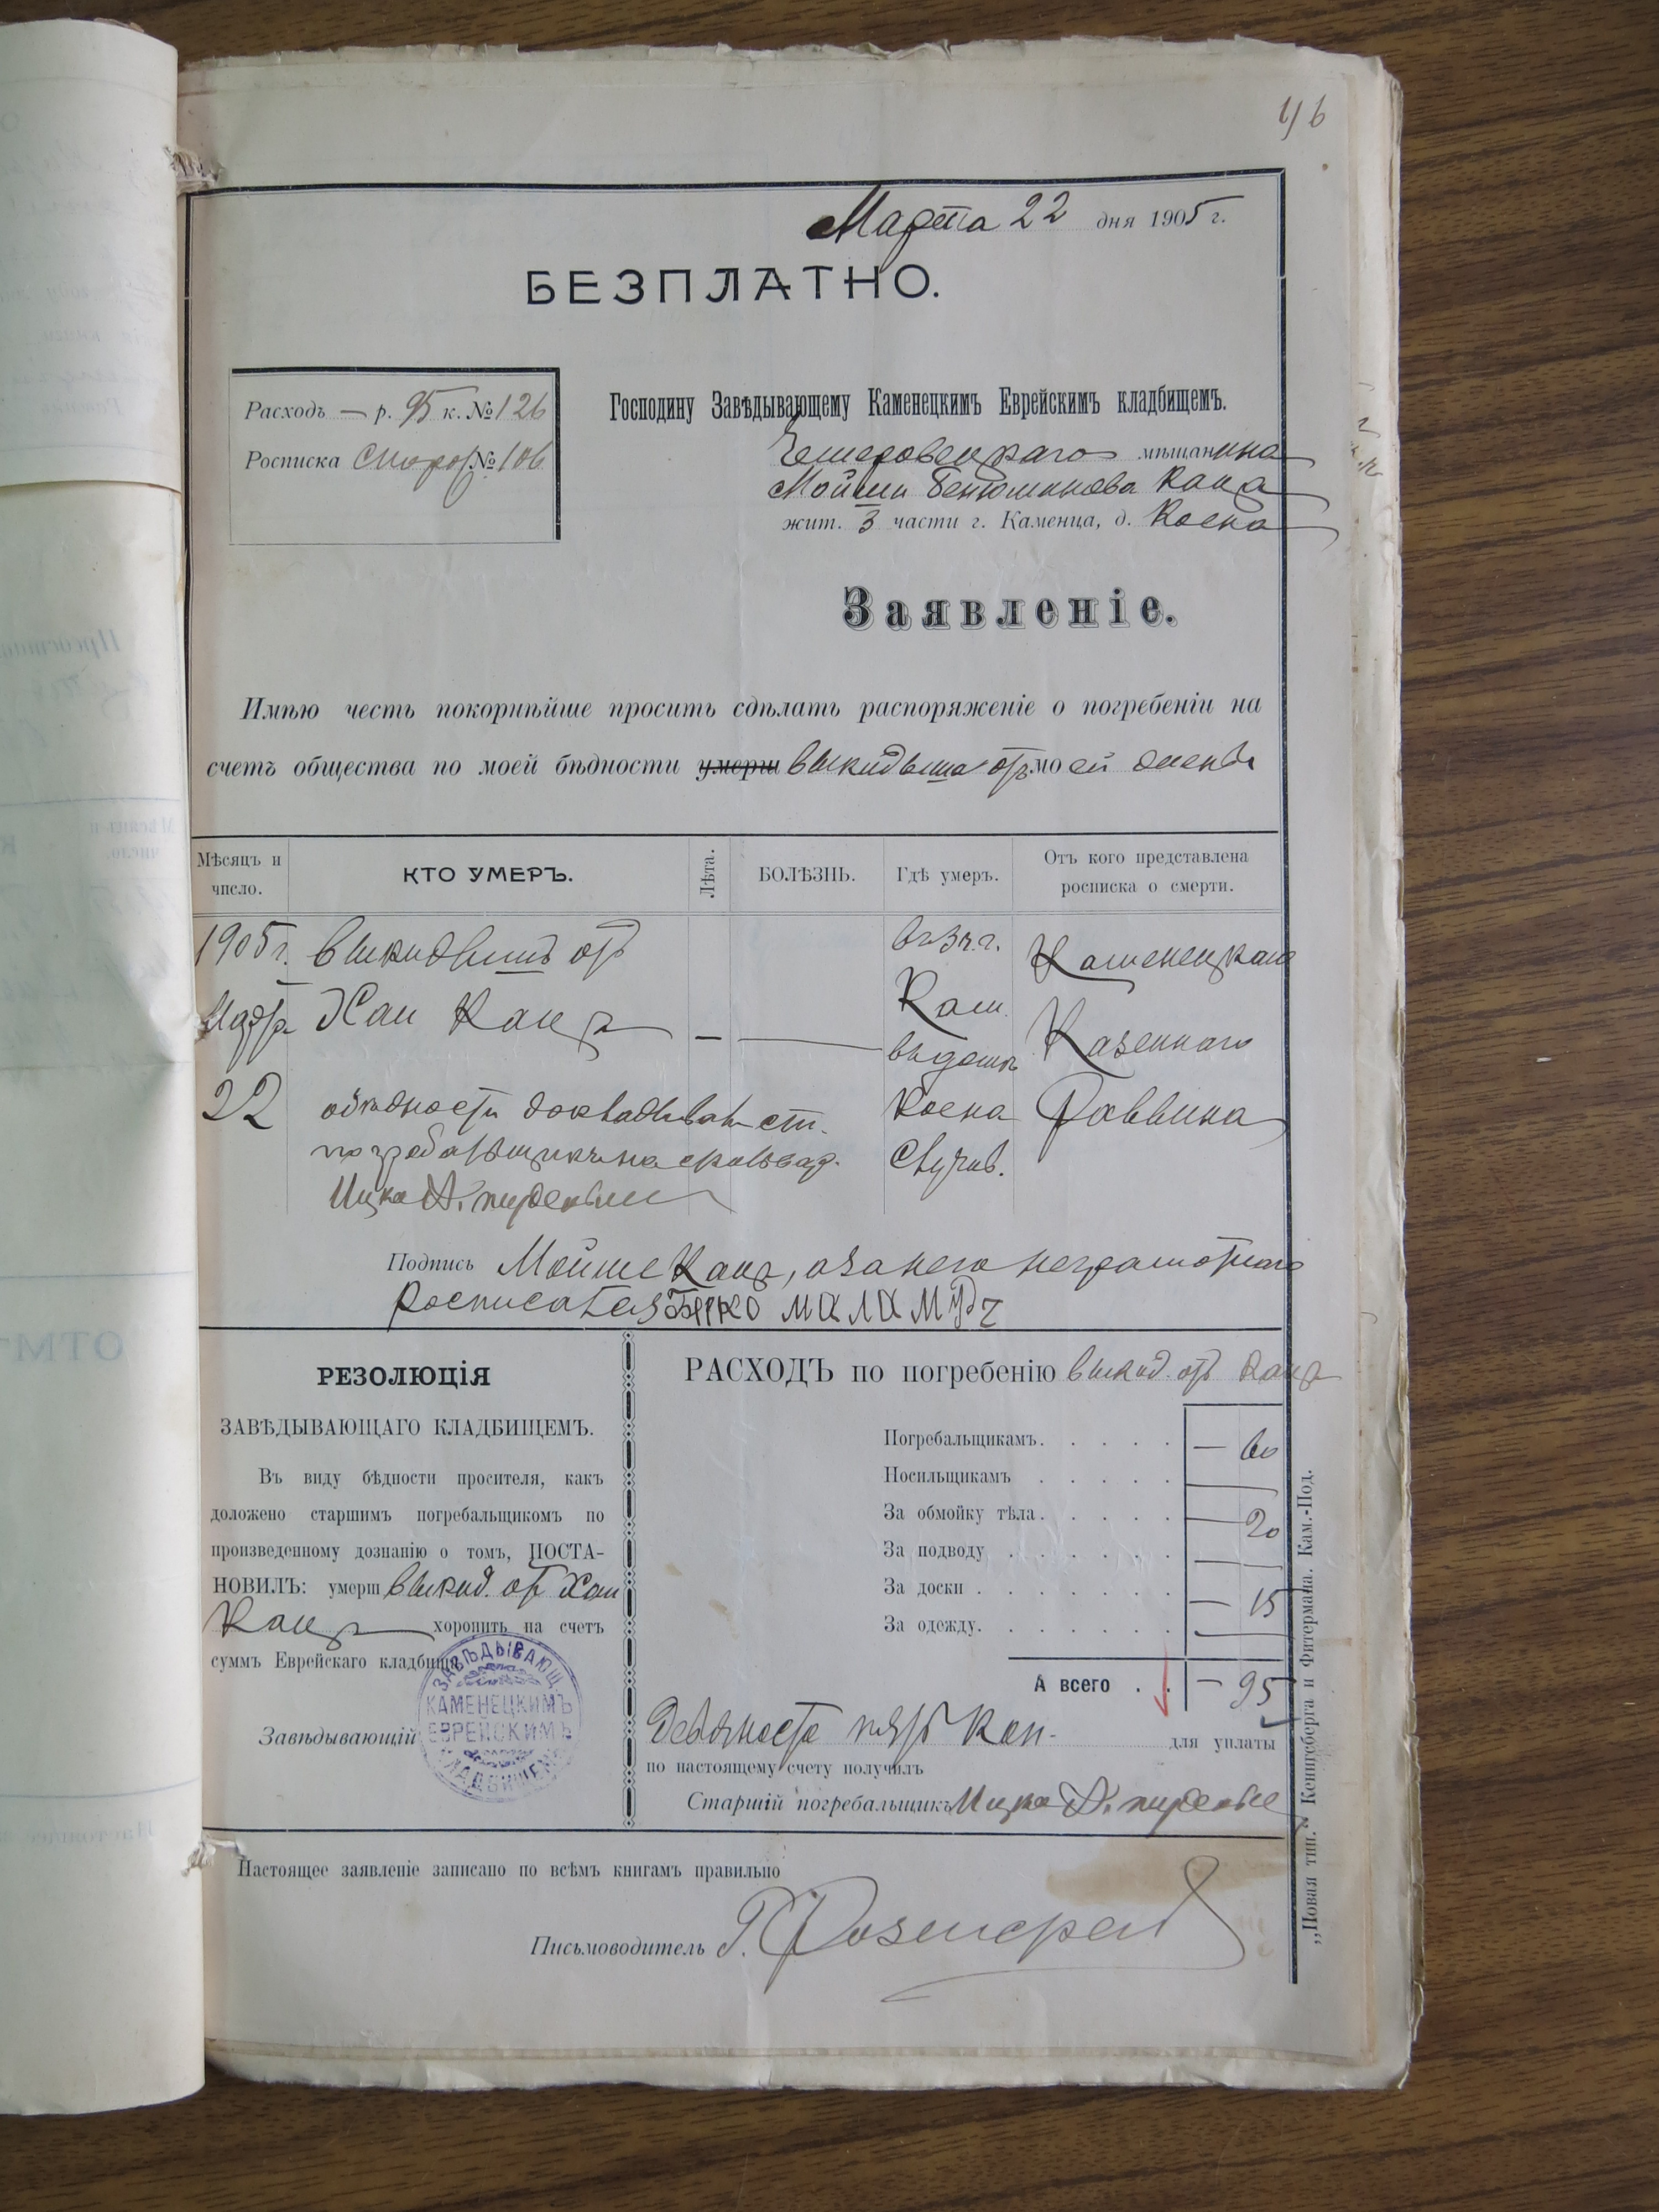 46
Марта 22 дня 1905 г.
БЕЗПЛАТНО.
Расходъ — р. 95 к. № 126
Росписка № 106
Господину Завѣдывающему Каменецкимъ Еврейскимъ кладбищемъ.
мѣщанина
Мойши Бенюминова Каца
жит. 3 части г. Каменца, д. Коена
Заявленіе.
Имѣю честь покорнѣйше просить сдѣлать распоряженіе о погребеніи на
счетъ общества по моей бѣдности умерш выкидыша отъ моей жены
Мѣсяцъ и число.
КТО УМЕРЪ.
Лѣта.
БОЛѢЗНЬ.
Гдѣ умеръ.
Отъ кого представлена росписка о смерти.
1905 г. выкидышъ отъ въ 3 ч. г. Каменецкаго
Марта Хаи Кацъ — — Кам. Казеннаго
въ домѣ
22 о бѣдности докладывалъ ст. Коена Раввина
погребальщикъ
Ицко
Подпись Мойше Кацъ, а за него неграмотнаго
росписался
РЕЗОЛЮЦІЯ
ЗАВѢДЫВАЮЩАГО КЛАДБИЩЕМЪ.
Въ виду бѣдности просителя, какъ
доложено старшимъ погребальщикомъ по
произведенному дознанію о томъ, ПОСТА-
НОВИЛЪ: умерш выкид. отъ Хаи
Кацъ хоронить на счетъ
суммъ Еврейскаго кладбища.
Завѣдывающій
ЗАВѢДЫВАЮЩ.
КАМЕНЕЦКИМЪ
ЕВРЕЙСКИМЪ
КЛАДБИЩЕМЪ
РАСХОДЪ по погребенію выкид. отъ Кацъ
Погребальщикамъ. — 60
Носильщикамъ
За обмойку тѣла. — 20
За подводу
За доски — 15
За одежду.
А всего — 95
Девяносто пять коп. для уплаты
по настоящему счету получилъ
Старшій погребальщикъ Ицко
Настоящее заявленіе записано по всѣмъ книгамъ правильно
Письмоводитель
„Новая тип.“ Кенигсберга и Фитермана. Кам.-Под.